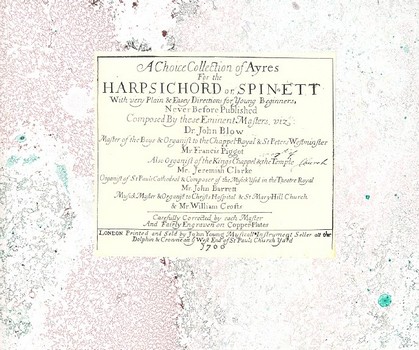 A Choice Collection of Ayres
For the
HARPSICHORD or SPINETT
With very Plain & Easey Directions for Young Beginners,
Never Before Published
Composed By these Eminent Masters, viz.
Dr John Blow
Master of the Boys & Organist to the Chappel Royal & St Peters Westminster
Mr Francis Piggot
Also Organist of the Kings Chappel & the Temple Church
Mr Jeremiah Clarke
Organist of St Pauls Cathedral & Composer of the Musick Us'd in the Theatre Royal
Mr John Barrett
Musick Master & Organist to Christs Hospital & St Mary Hill Church
& Mr William Crofts
Carefully Corrected by each Master
And Fairly Engraven on Copper Plates
LONDON Printed and Sold by John Young Musicall Instrument Seller att the
Dolphin & Crowne att ye West End of St Pauls Church Yard
1700